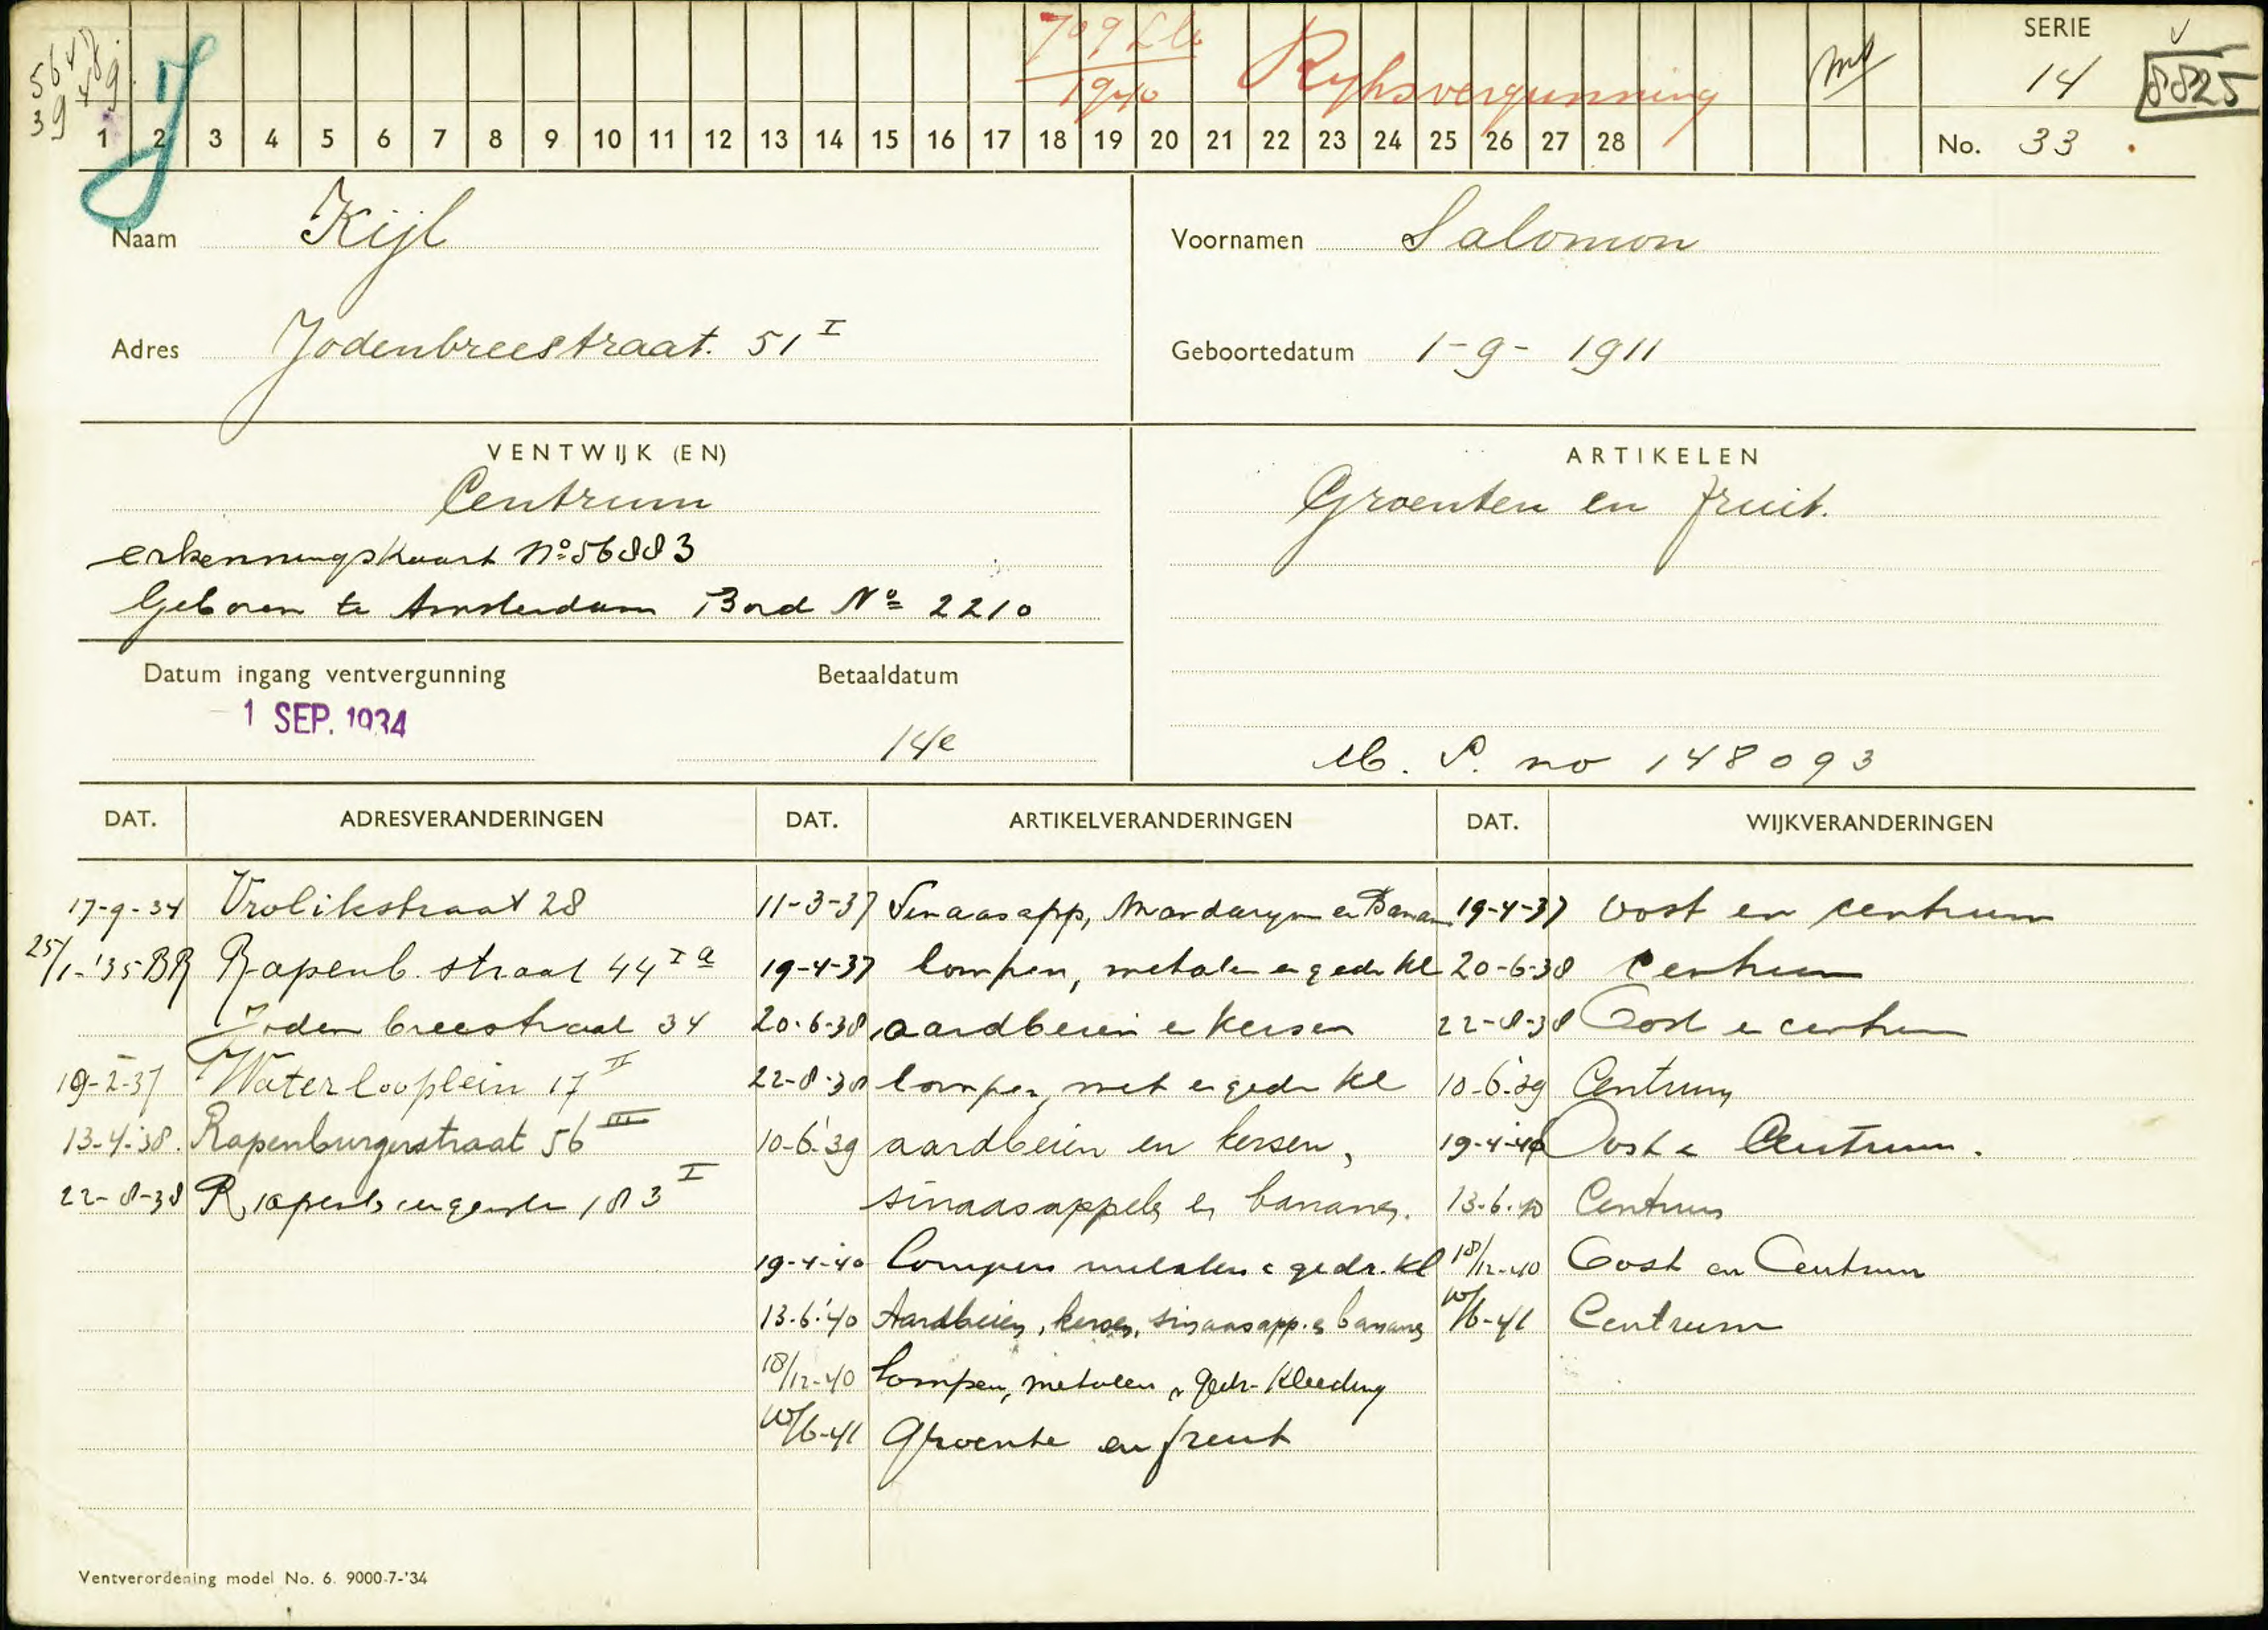 5647
39 489
J
709 L.M.
1940
Ryksvergunning
SERIE
14
8825
1 2 3 4 5 6 7 8 9 10 11 12 13 14 15 16 17 18 19 20 21 22 23 24 25 26 27 28
No. 33
Naam Kijl
Voornamen Salomon
Adres Jodenbreestraat. 51 I
Geboortedatum 1-9-1911
VENTWIJK (EN)
Centrum
erkenningskaart No 56883
Geboren te Amsterdam Bord No 2210
ARTIKELEN
Groenten en fruit.
Datum ingang ventvergunning
1 SEP. 1934
Betaaldatum
14e
P. no 148093
DAT. ADRESVERANDERINGEN DAT. ARTIKELVERANDERINGEN DAT. WIJKVERANDERINGEN
17-9-34 Vrolikstraat 28 11-3-37 Sinaasapp, Mandaryn en Banan 19-4-37 Oost en centrum
25/1-'35 BR Rapenb. straat 44 I a 19-4-37 lompen, metalen en gedr kl 20-6-38 Centrum
Joden breestraat 34 20-6-38 aardbeien en Kersen 22-8-38 Oost en centrum
19-2-37 Waterlooplein 17 II 22-8-38 lompen, met en gedr Kl 10-6-'39 Centrum
13-4-'38. Rapenburgerstraat 56 III 10-6-'39 aardbeien en kersen, 19-4-40 Oost & Centrum.
22-8-38 Rapenburgerstr 183 I sinaasappels en bananen. 13-6-40 Centrum
19-4-40 Lompen metalen & gedr. kl 18/12-40 Oost en Centrum
13-6-'40 Aardbeien, kersen, sinaasapp. en bananen 10/6-41 Centrum
18/12-40 Lompen, metalen & gedr- Kleeding
10/6-41 Groente en fruit
Ventverordening model No. 6. 9000-7-'34